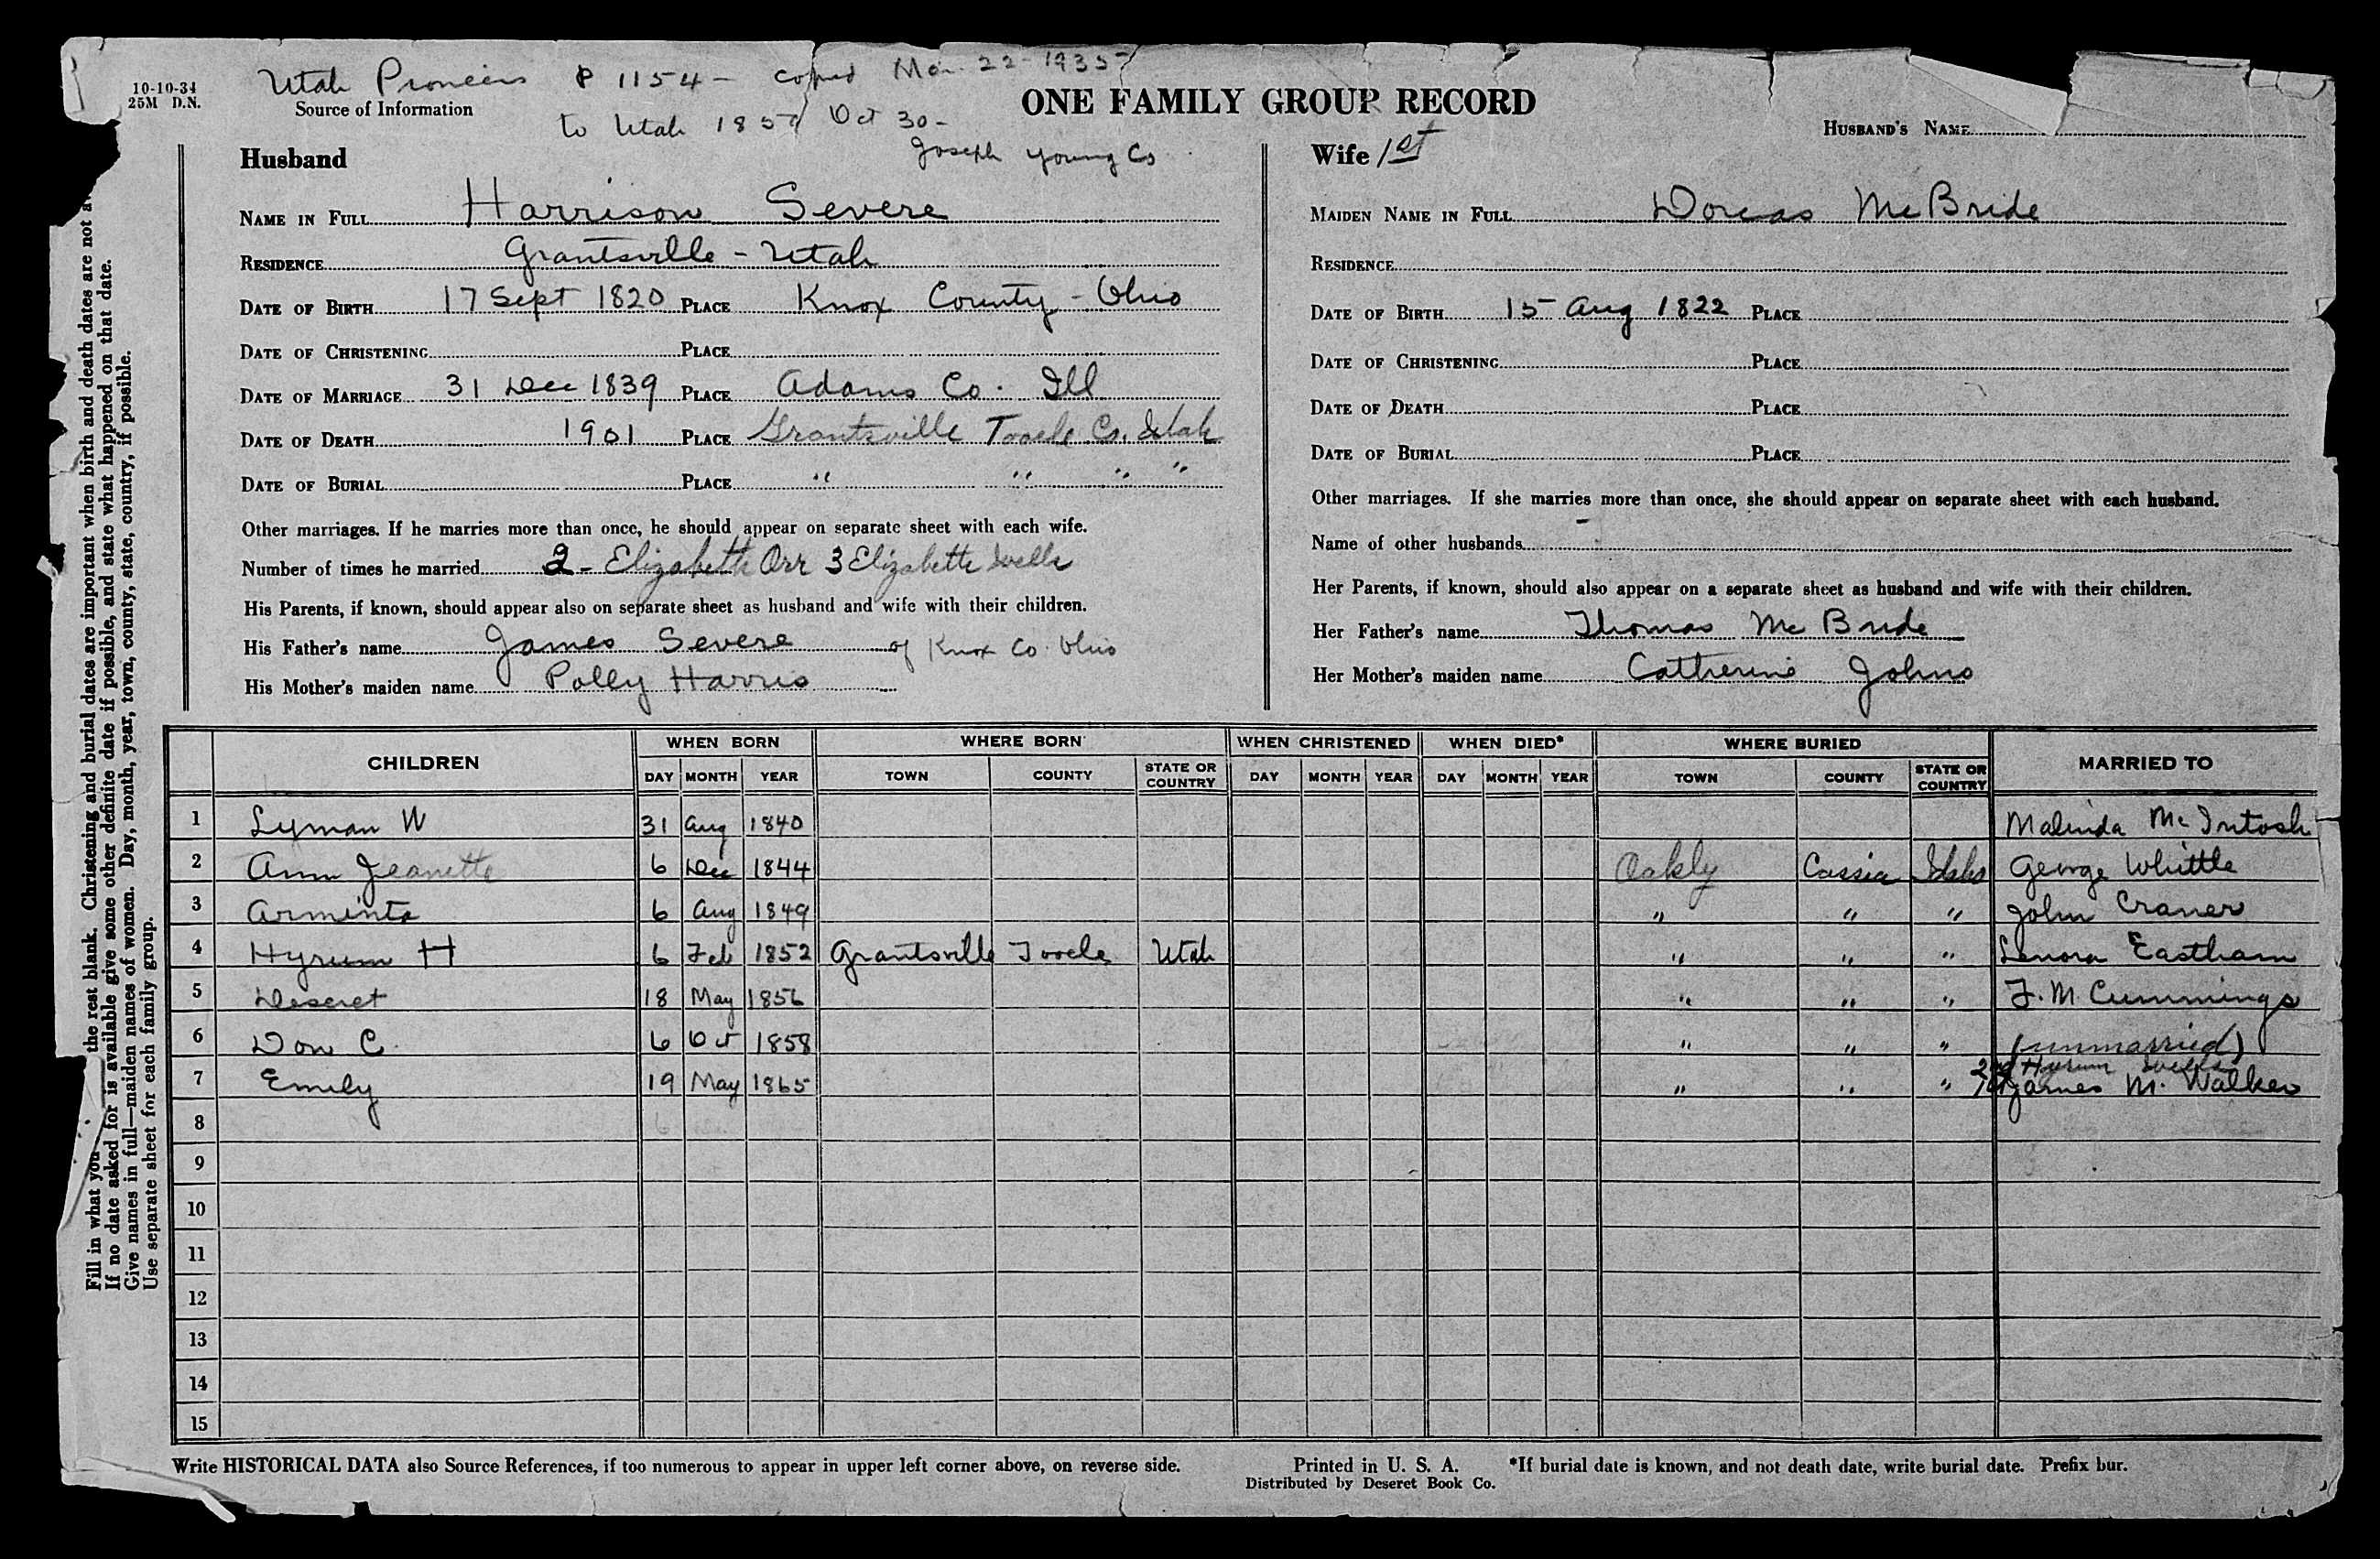 10-10-34
25M D.N.
Utah Pioneers P 1154 - copied Mar. 22 - 1935
Source of Information
to Utah 185 Oct 30 -
Joseph Young Co
ONE FAMILY GROUP RECORD
HUSBAND'S NAME
Husband
NAME IN FULL Harrison Severe
RESIDENCE Grantsville - Utah
DATE OF BIRTH 17 Sept 1820 PLACE Knox County - Ohio
DATE OF CHRISTENING PLACE
DATE OF MARRIAGE 31 Dec 1839 PLACE Adams Co. Ill
DATE OF DEATH 1901 PLACE Grantsville Tooele Co. Utah
DATE OF BURIAL PLACE " " " "
Other marriages. If he marries more than once, he should appear on separate sheet with each wife.
Number of times he married 2 - Elizabeth Orr 3 Elizabeth Wells
His Parents, if known, should appear also on separate sheet as husband and wife with their children.
His Father's name James Severe of Knox Co. Ohio
His Mother's maiden name Polly Harris
Wife 1st
MAIDEN NAME IN FULL Dorcas McBride
RESIDENCE
DATE OF BIRTH 15 Aug 1822 PLACE
DATE OF CHRISTENING PLACE
DATE OF DEATH PLACE
DATE OF BURIAL PLACE
Other marriages. If she marries more than once, she should appear on separate sheet with each husband.
Name of other husbands -
Her Parents, if known, should also appear on a separate sheet as husband and wife with their children.
Her Father's name Thomas McBride
Her Mother's maiden name Catherine Johns
CHILDREN WHEN BORN WHERE BORN WHEN CHRISTENED WHEN DIED* WHERE BURIED MARRIED TO
DAY MONTH YEAR TOWN COUNTY STATE OR COUNTRY DAY MONTH YEAR DAY MONTH YEAR TOWN COUNTY STATE OR COUNTRY
1 Lyman W 31 Aug 1840 Malinda McIntosh
2 Ann Jeanette 6 Dec 1844 Oakly Cassia Idaho George Whittle
3 Arminta 6 Aug 1849 " " " John Craner
4 Hyrum H 6 Feb 1852 Grantsville Tooele Utah " " " Lenora Eastham
5 Deseret 18 May 1856 " " " F. M. Cummings
6 Don C. 6 Oct 1858 " " " (unmarried)
2nd Hyrum Wells
7 Emily 19 May 1865 " " " 1st James M. Walker
8 6
9
10
11
12
13
14
15
Write HISTORICAL DATA also Source References, if too numerous to appear in upper left corner above, on reverse side. Printed in U. S. A. *If burial date is known, and not death date, write burial date. Prefix bur.
Distributed by Deseret Book Co.
Fill in what you the rest blank. Christening and burial dates are important when birth and death dates are not
If no date asked for is available give some other definite date if possible, and state what happened on that date.
Give names in full—maiden names of women. Day, month, year, town, county, state, country, if possible.
Use separate sheet for each family group.